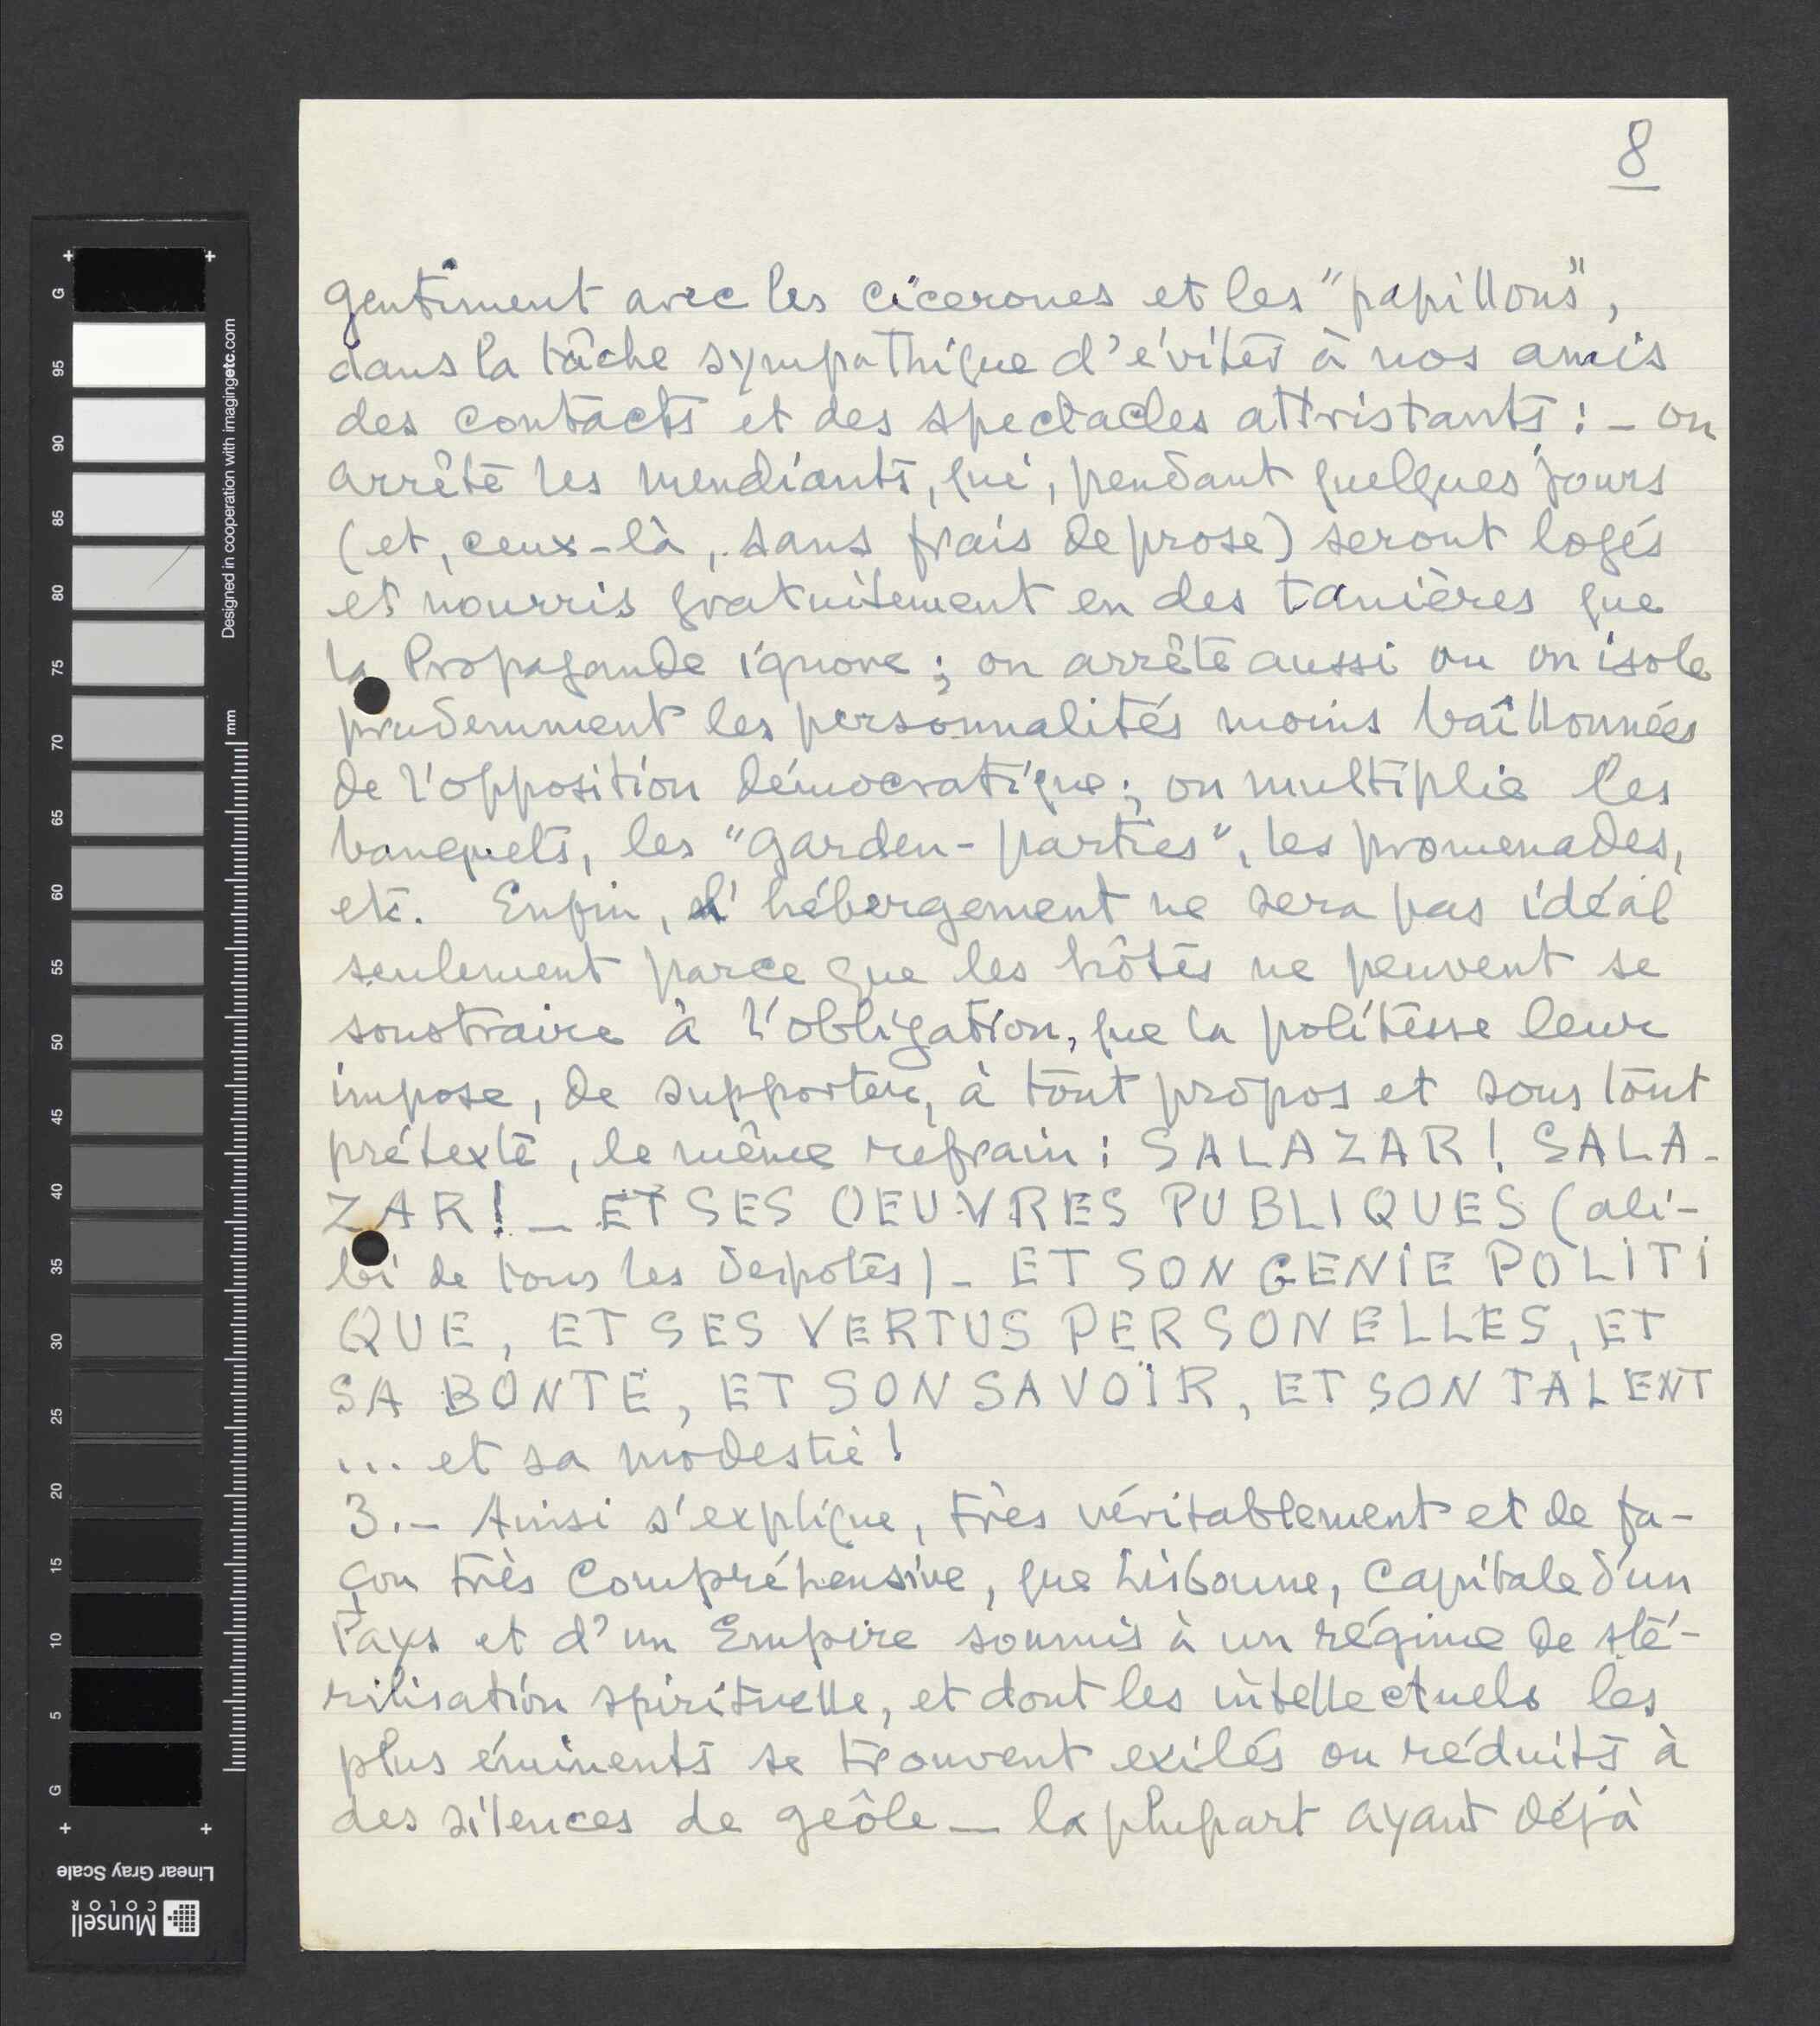 8
gentiment avec les cicerones et les "papillons",
dans la tâche sympathique d'éviter à nos amis
des contacts et des spectacles attristants : - on
arrête les mendiants, qui, pendant quelques jours
(et, ceux-là, sans frais de prose) seront logés
et nourris gratuitement en des tanières que
la Propagande ignore ; on arrête aussi ou on isole
prudemment les personnalités moins baîllonnées
de l'opposition démocratique ; on multiplie les
banquets, les "garden-parties", les promenades,
etc. Enfin, l'hébergement ne sera pas idéal
seulement parce que les hôtes ne peuvent se
soustraire à l'obligation, que la politesse leur
impose, de supporter, à tout propos et sous tout
prétexte, le même refrain : SALAZAR ! SALA-
ZAR ! - ET SES OEUVRES PUBLIQUES (ali-
bi de tous les despotes) - ET SON GENIE POLITI
QUE, ET SES VERTUS PERSONELLES, ET
SA BONTE, ET SON SAVOIR, ET SON TALENT
... et sa modestie !
3.- Ainsi s'explique, très véritablement et de fa-
çon très compréhensive, que Lisbonne, Capitale d'un
Pays et d'un Empire soumis à un régime de sté-
rilisation spirituelle, et dont les intellectuels les
plus éminents se trouvent exilés ou réduits à
des silences de geôle - la plupart ayant déjà
G
95
90
85
80
75
70
65
60
55
50
45
40
35
30
25
20
15
10
5
G
mm
Designed in cooperation with imagingetc.com
Linear Gray Scale
Munsell
COLOR